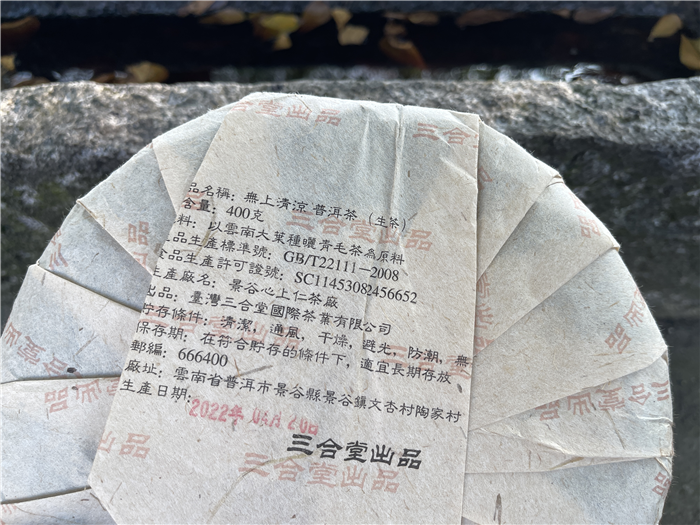 三合堂出品
三合堂出品
品名稱：無上清涼 普洱茶（生茶）
含量：400克
三合堂出品
料：以雲南大葉種曬青毛茶為原料
品生產標準號：GB/T22111—2008
食品生產許可證號：SC11453082456652
生產廠名：景谷心上仁茶廠
出品：臺灣三合堂國際茶業有限公司
貯存條件：清潔，通風，干燥，避光，防潮，無
保存期：在符合貯存的條件下，適宜長期存放
郵編：666400
廠址：雲南省普洱市景谷縣景谷鎮文杏村陶家村
生產日期：
2022年
三合堂出品
三合堂出品